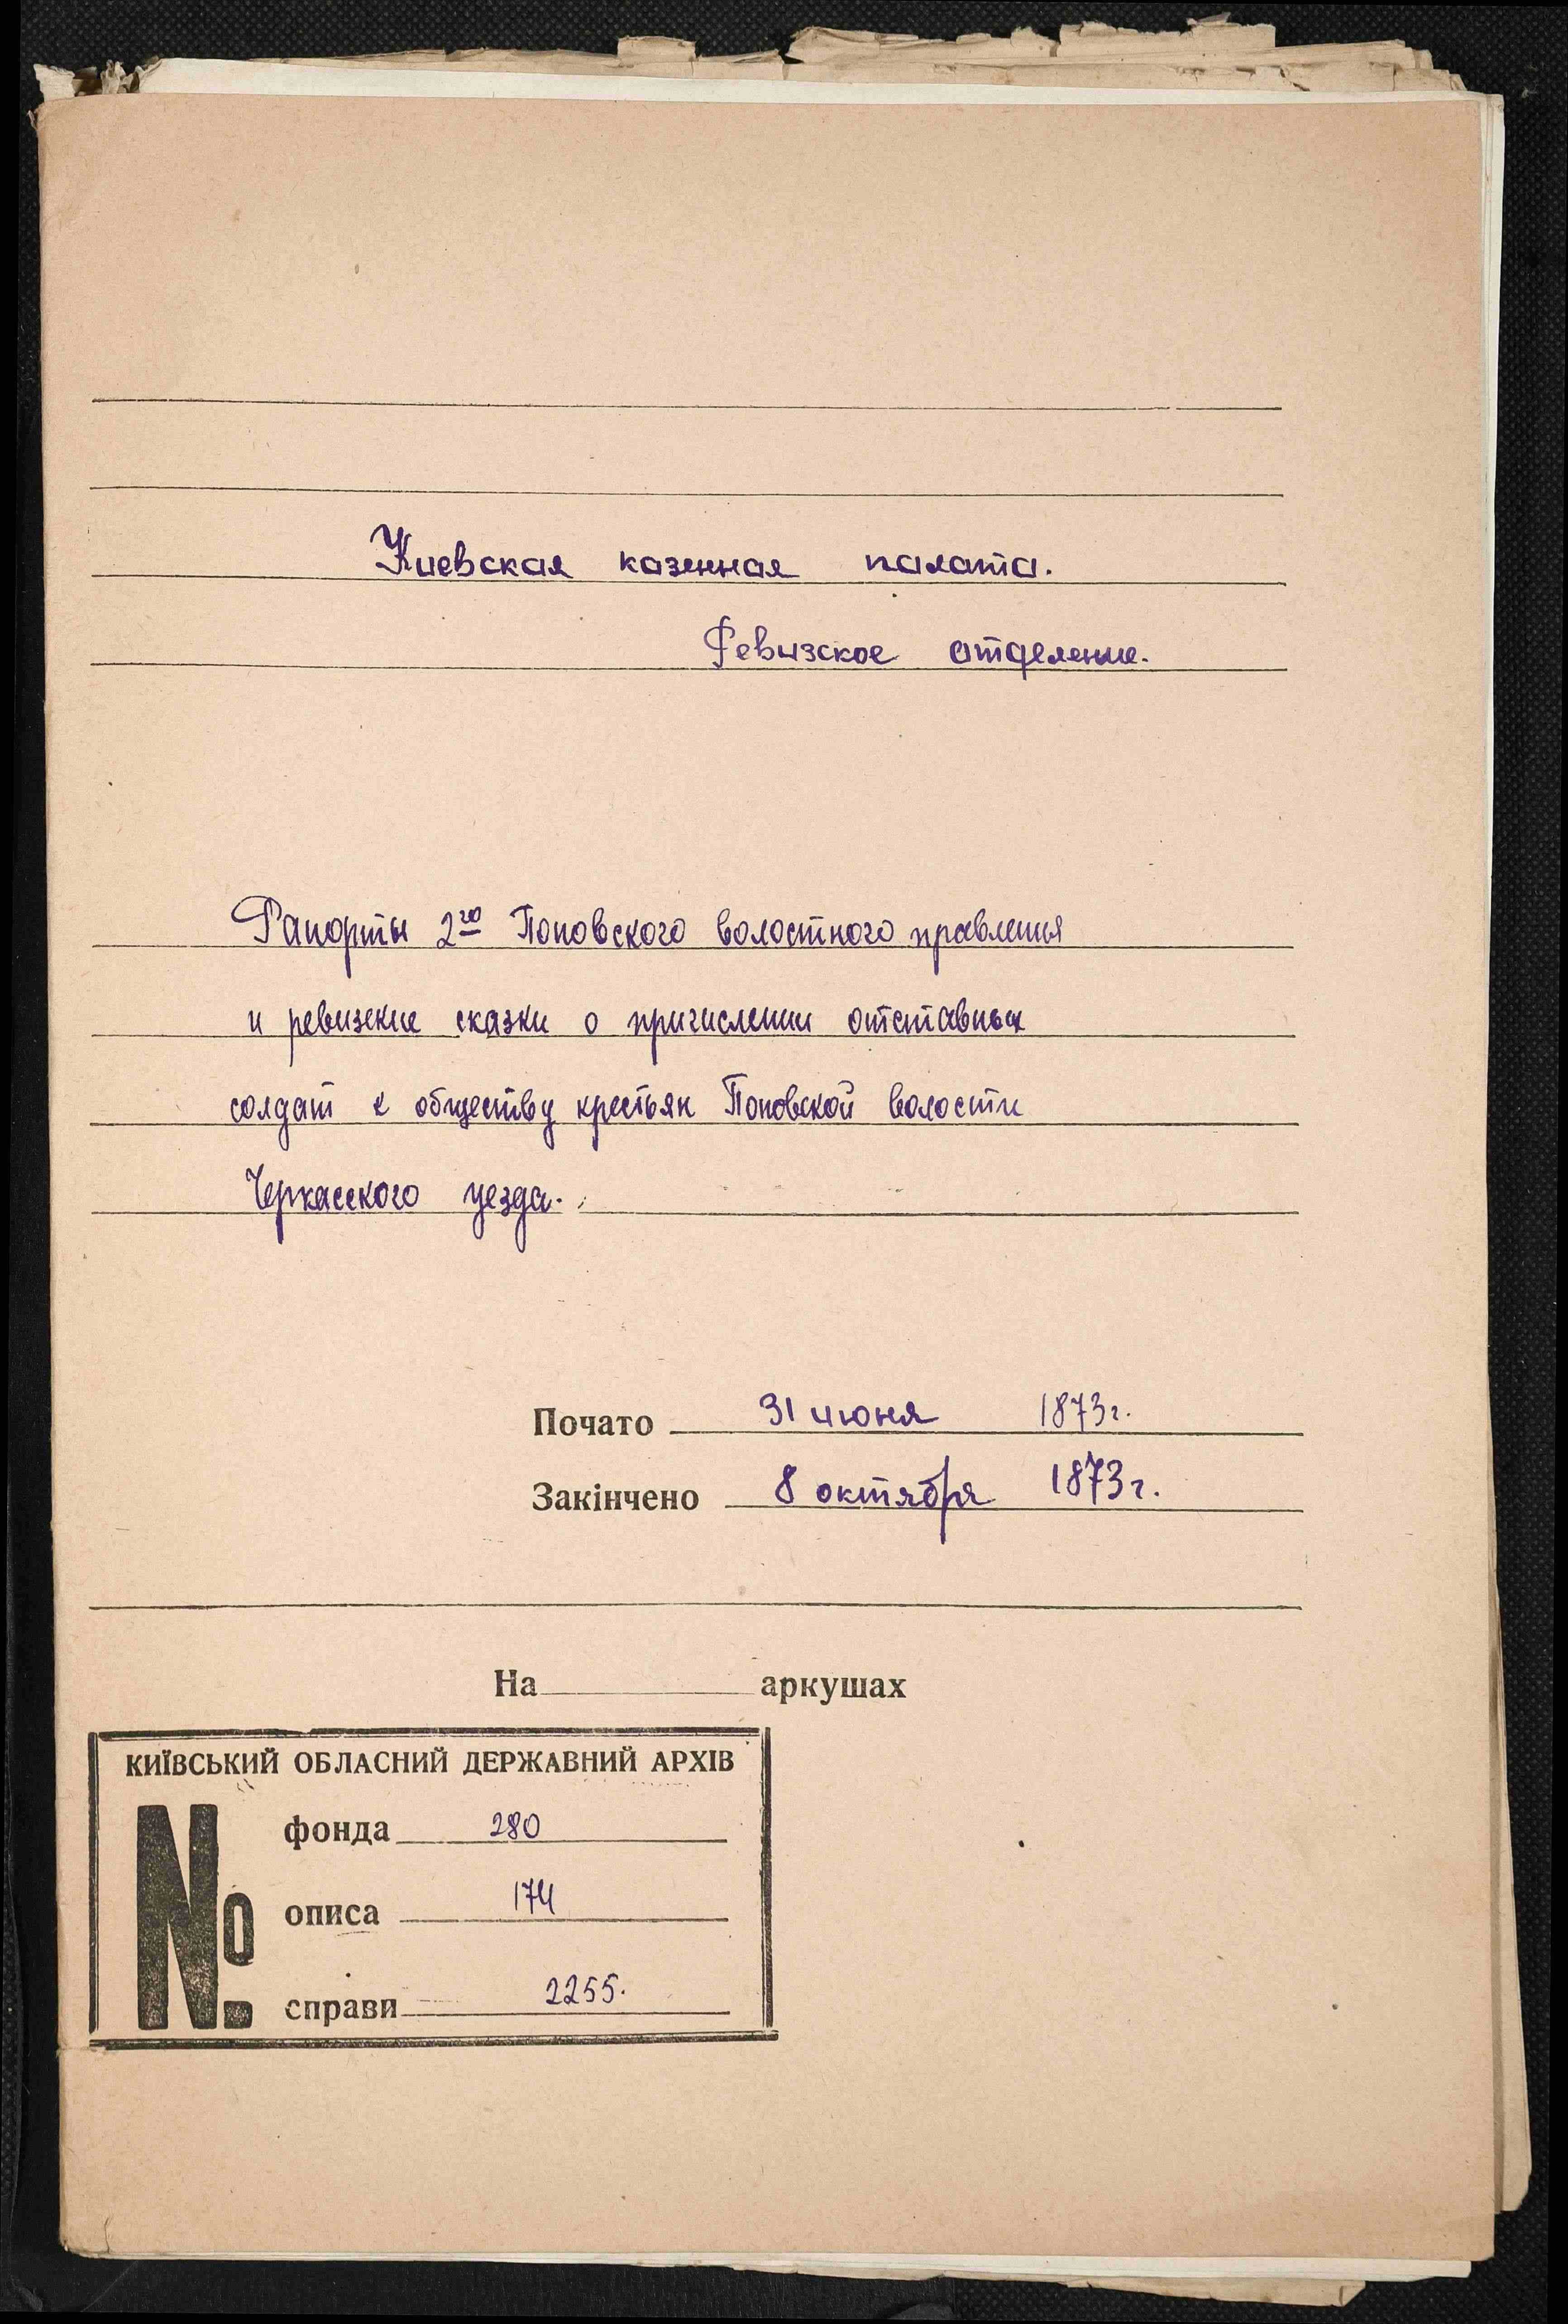 Киевская казенная палата.
Ревизское отделение.
Рапорты 2го Поповского волостного правления
и ревизкие сказки о причислении отставных
солдат к обществу крестьян Поповской волости
Черкасского уезда.
Почато 31 июня 1873г.
Закінчено 8 октября 1873г.
На аркушах
КИЇВСЬКИЙ ОБЛАСНИЙ ДЕРЖАВНИЙ АРХІВ
№
фонда 280
описа 174
справи 2255.